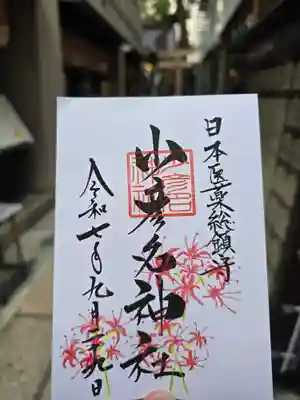 日本医薬総鎮守
少彦名神社
令和七年九月二十九日